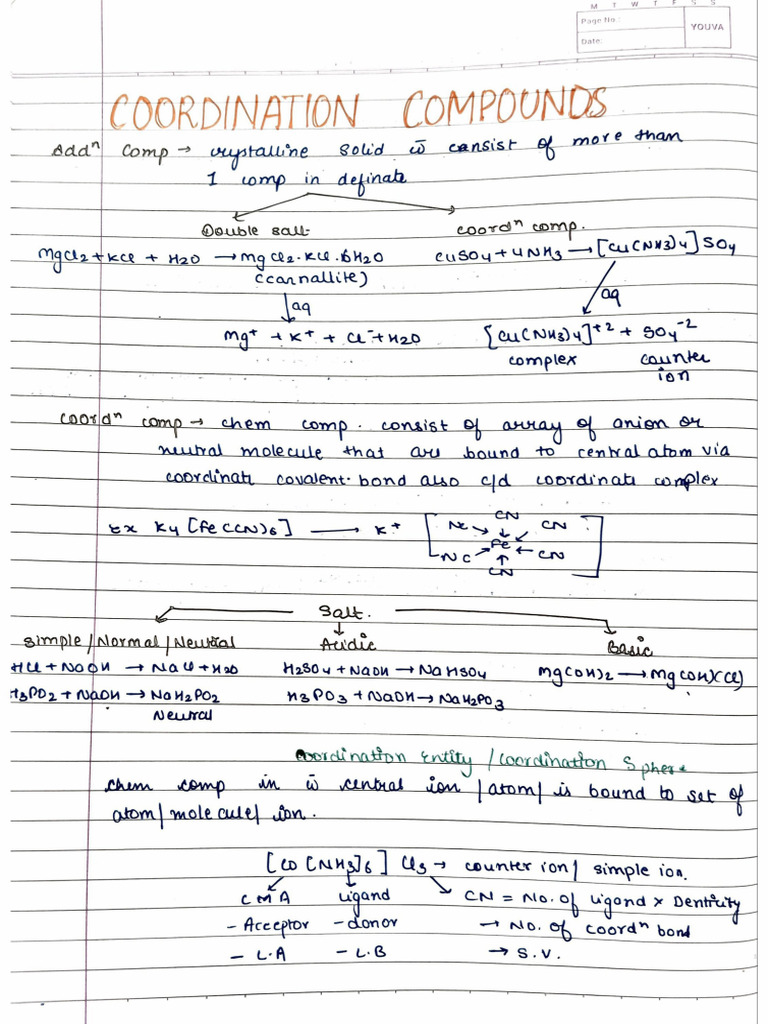 M T W T F S S
Page No.:
YOUVA
Date:
COORDINATION COMPOUNDS
Addⁿ Comp → crystalline solid w̄ consist of more than
1 comp in definate
Double salt
coordⁿ comp.
MgCl2 + KCl + H2O → MgCl2.KCl.6H2O
CuSO4 + 4NH3 → [Cu(NH3)4]SO4
(carnallite)
aq
aq
Mg⁺ + K⁺ + Cl⁻ + H2O
[Cu(NH3)4]⁺² + SO4⁻²
complex counter
ion
coordⁿ comp → chem comp. consist of array of anion or
neutral molecule that are bound to central atom via
coordinate covalent bond also c/d coordinate complex
Ex K4[Fe(CN)6] → K⁺
CN
NC CN
Fe
NC CN
CN
Salt.
Simple/Normal/Neutral
Acidic
Basic
HCl + NaOH → NaCl + H2O
H2SO4 + NaOH → NaHSO4
Mg(OH)2 → Mg(OH)(Cl)
H3PO2 + NaOH → NaH2PO2
H3PO3 + NaOH → NaH2PO3
Neutral
Coordination Entity / Coordination Sphere
chem comp in w̄ central ion /atom/ is bound to set of
atom/ molecule/ ion.
[CO(NH3)6] Cl3 → counter ion/ simple ion.
CMA ligand CN = No. of ligand × Denticity
- Acceptor - donor → No. of coordⁿ bond
- L.A - L.B → S.V.